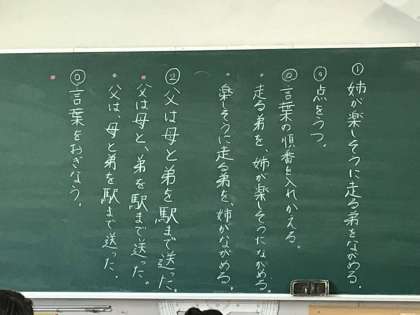 ① 姉が楽しそうに走る弟をながめる。
◎ 点をうつ。
◎ 言葉の順番を入れかえる。
・走る弟を、姉が楽しそうにながめる。
・楽しそうに走る弟を、姉がながめる。
② 父は母と弟を駅まで送った。
・父は母と、弟を駅まで送った。
・父は、母と弟を駅まで送った。
◎ 言葉をおぎなう。